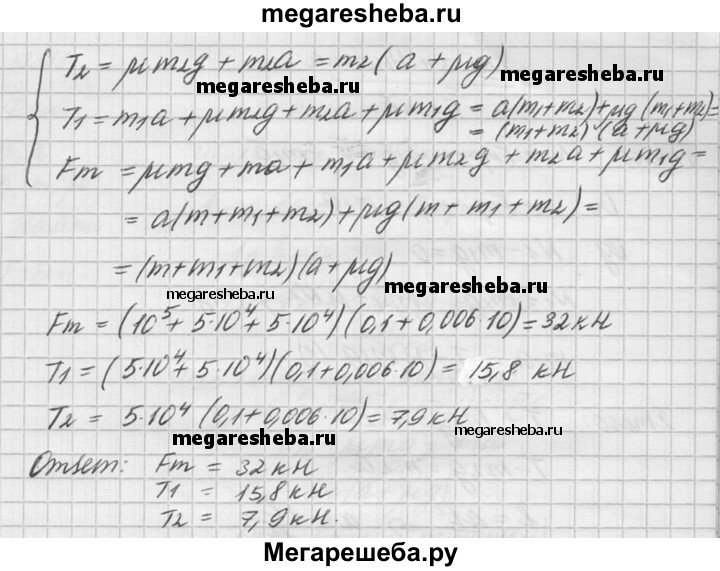 megaresheba.ru
T2 = μm2g + m2a = m2(a + μg)
megaresheba.ru megaresheba.ru
T1 = m1a + μm2g + m2a + μm1g = a(m1+m2)+μg(m1+m2)=
= (m1+m2)(a+μg)
Fm = μmg + ma + m1a + μm2g + m2a + μm1g =
= a(m+m1+m2)+μg(m+m1+m2)=
= (m+m1+m2)(a+μg)
megaresheba.ru megaresheba.ru
Fm = (10⁵+5·10⁴+5·10⁴)(0,1+0,006·10)=32кН
T1 = (5·10⁴+5·10⁴)(0,1+0,006·10)= 15,8 кН
T2 = 5·10⁴(0,1+0,006·10)=7,9кН
megaresheba.ru megaresheba.ru
Ответ: Fm = 32кН
T1 = 15,8кН
T2 = 7,9кН.
Мегарешеба.ру